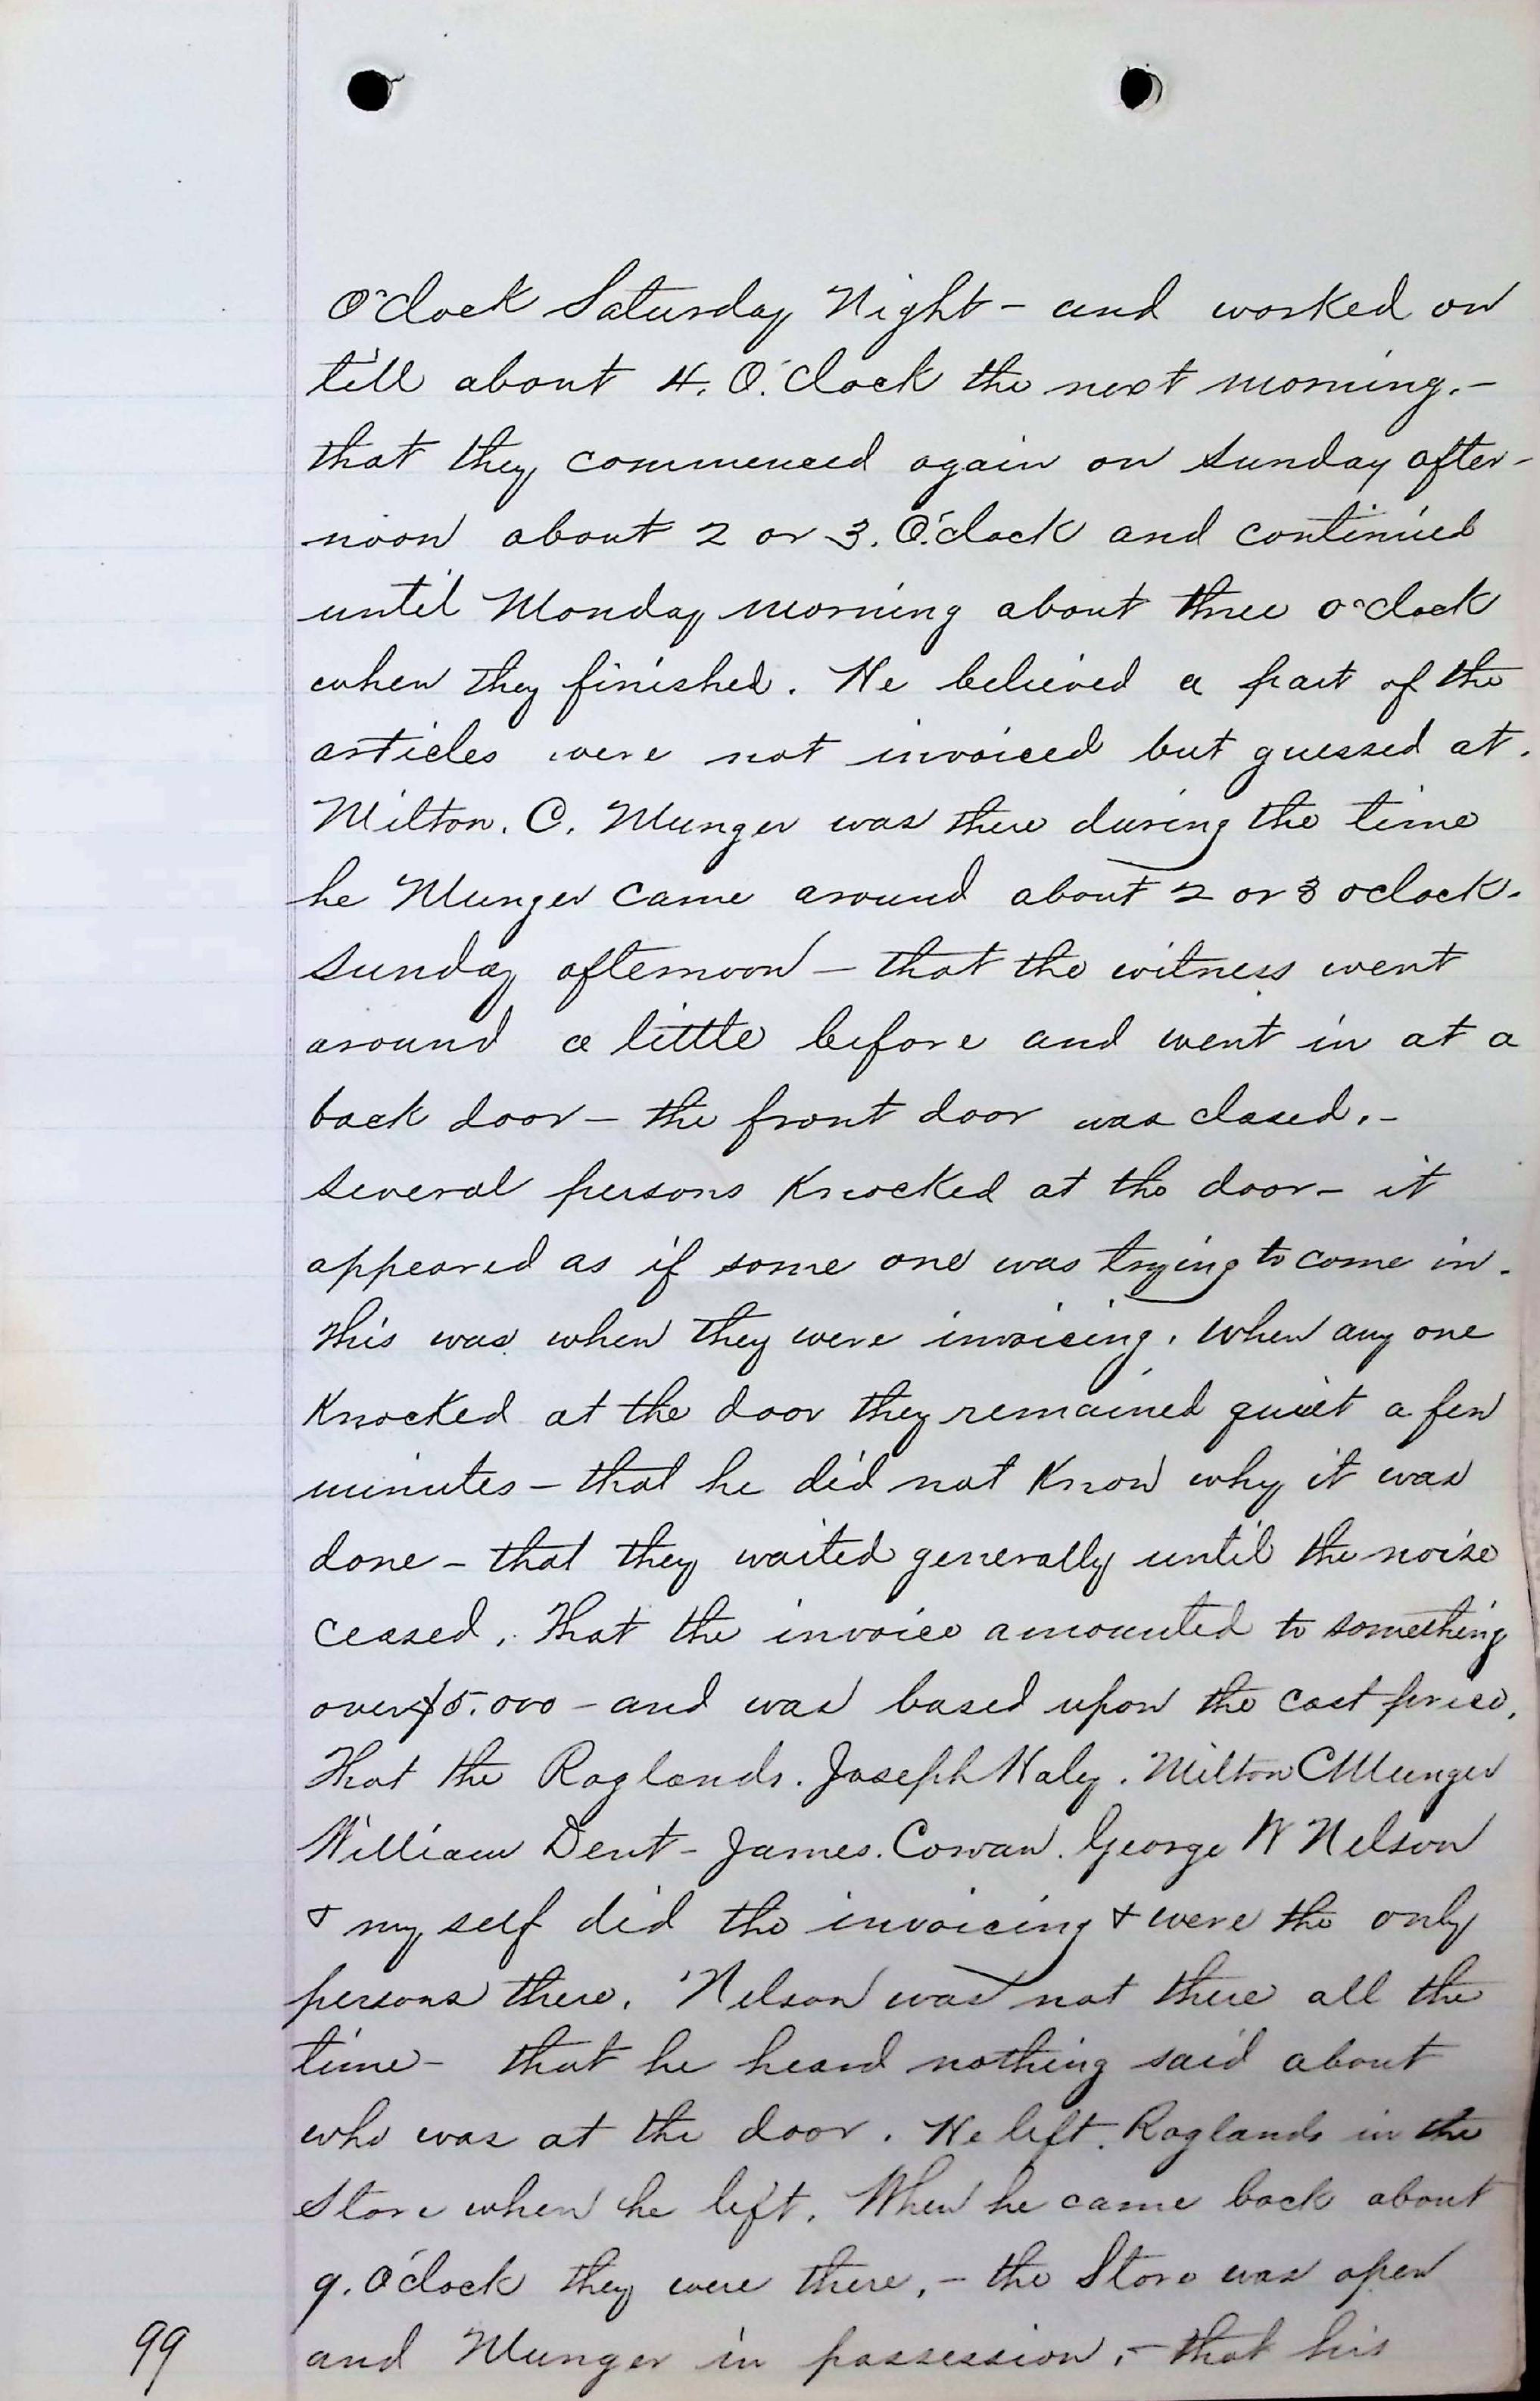 O'clock Saturday Night - and worked on
till about 4. O'clock the next morning.-
that they commenced again on Sunday after-
noon about 2 or 3. O'clock and continued
until Monday morning about three o'clock
when they finished. He believed a part of the
articles were not invoiced but guessed at.
Milton. C. Munger was there during the time
he Munger came around about 2 or 3 oclock.
Sunday afternoon - that the witness went
around a little before and went in at a
back door - the front door was closed.-
several persons Knocked at the door - it
appeared as if some one was trying to come in.
This was when they were invoicing. When any one
Knocked at the door they remained quiet a few
minutes - that he did not Know why it was
done - that they waited generally until the noise
ceased. That the invoice amounted to something
over $5.000 - and was based upon the cost price.
That the Raglands. Joseph Haley. Milton C Munger
William Dent - James. Cowan. George W Nelson
& my self did the invoicing & were the only
persons there. Nelson was not there all the
time - that he heard nothing said about
who was at the door. He left. Raglands in the
Store when he left. When he came back about
9. O'clock they were there, - the Store was open
and Munger in possession, - that his
99